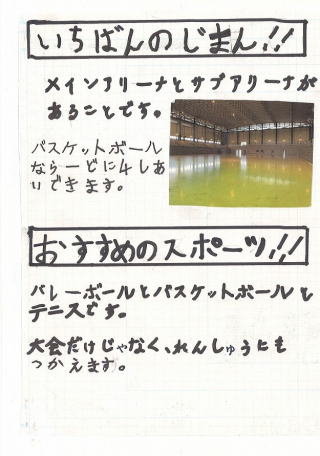 いちばんのじまん!!
メインアリーナとサブアリーナが
あることです。
バスケットボール
なら一どに4しあ
いできます。
おすすめのスポーツ!!
バレーボールとバスケットボールと
テニスです。
大会だけじゃなく、れんしゅうにも
つかえます。